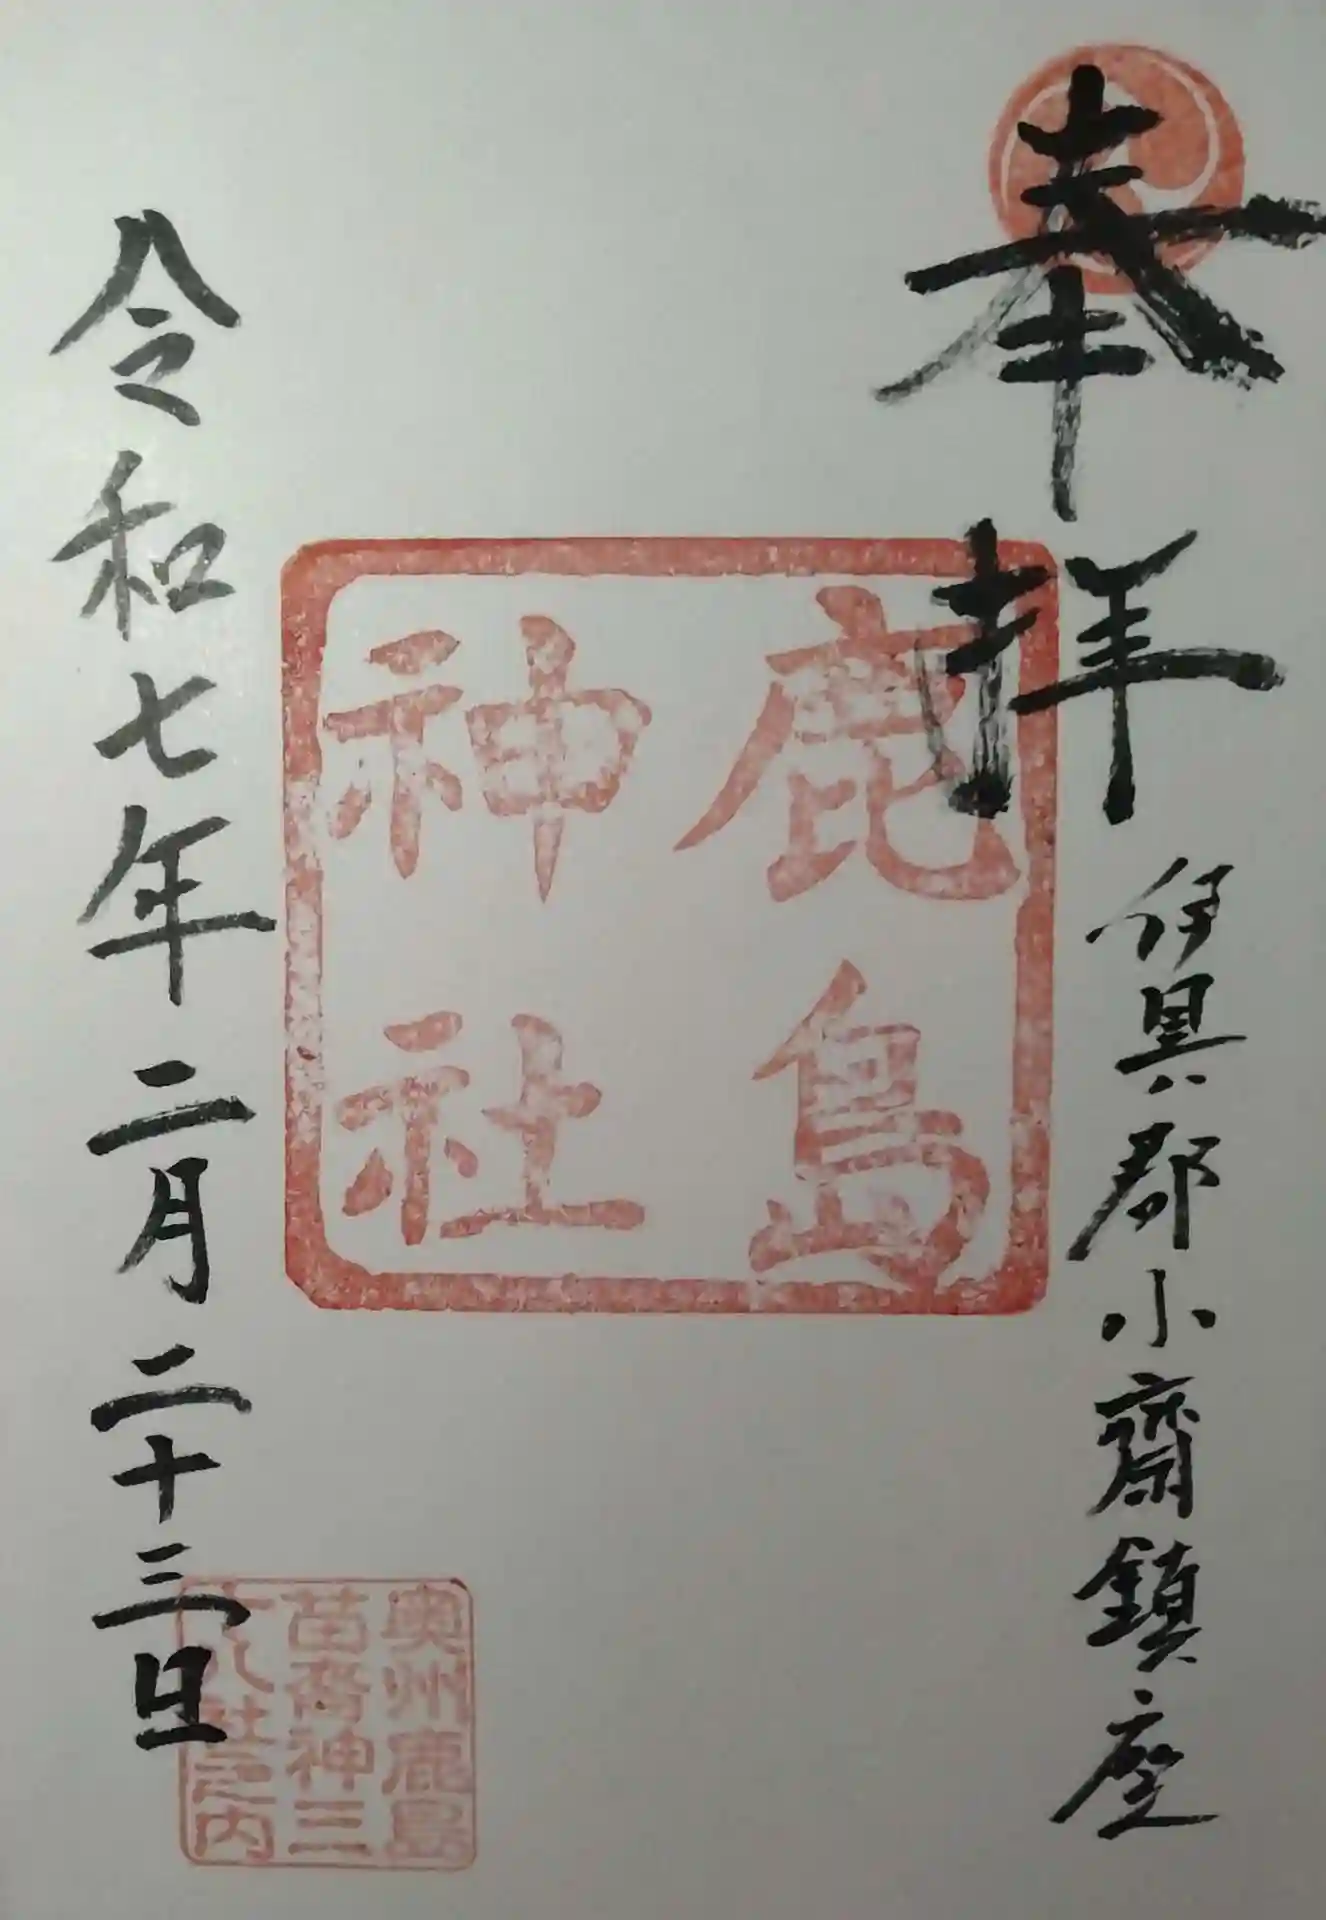 奉拝
伊具郡小齋鎮座
鹿島
神社
令和七年二月二十三日
奥州鹿島
苗裔神三
十八社之内